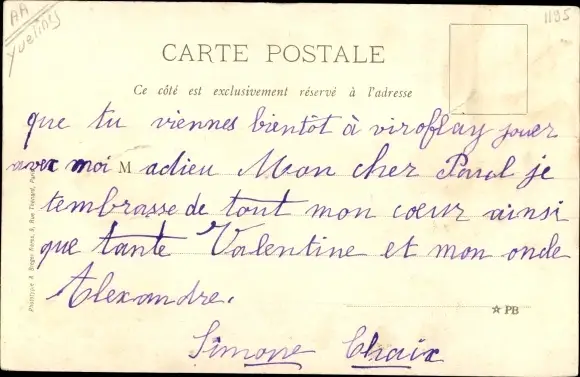 AA
Yvelines
1195
CARTE POSTALE
Ce côté est exclusivement réservé à l'adresse
que tu viennes bientôt à viroflay jouer
avec moi M adieu Mon cher Paul je
tembrasse de tout mon cœur ainsi
que tante Valentine et mon oncle
Alexandre.
☆ PB
Simone Chaix